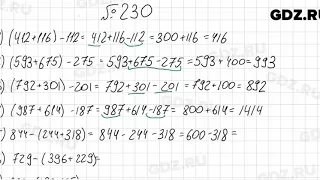 №230
GDZ.RU
) (412+116)-112= 412+116-112=300+116=416
) (593+675)-275= 593+675-275=593+400=993
) (792+301)-201= 792+301-201=792+100=892
) (987+614)-187= 987+614-187= 800+614=1414
) 844-(244-318)= 844-244-318=600-318=
) 729-(396+229)=